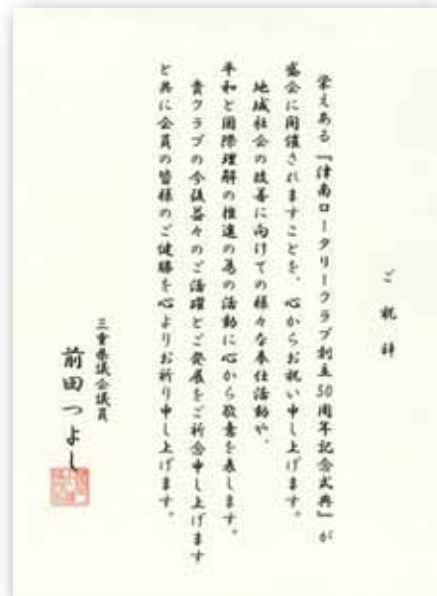 ご祝辞
栄えある『津南ロータリークラブ創立50周年記念式典』が
盛会に開催されますことを、心からお祝い申し上げます。
地域社会の改善に向けての様々な奉仕活動や、
平和と国際理解の推進の為の活動に心から敬意を表します。
貴クラブの今後益々のご活躍とご発展をご祈念申し上げます
と共に会員の皆様のご健勝を心よりお祈り申し上げます。
三重県議会議員
前田つよし